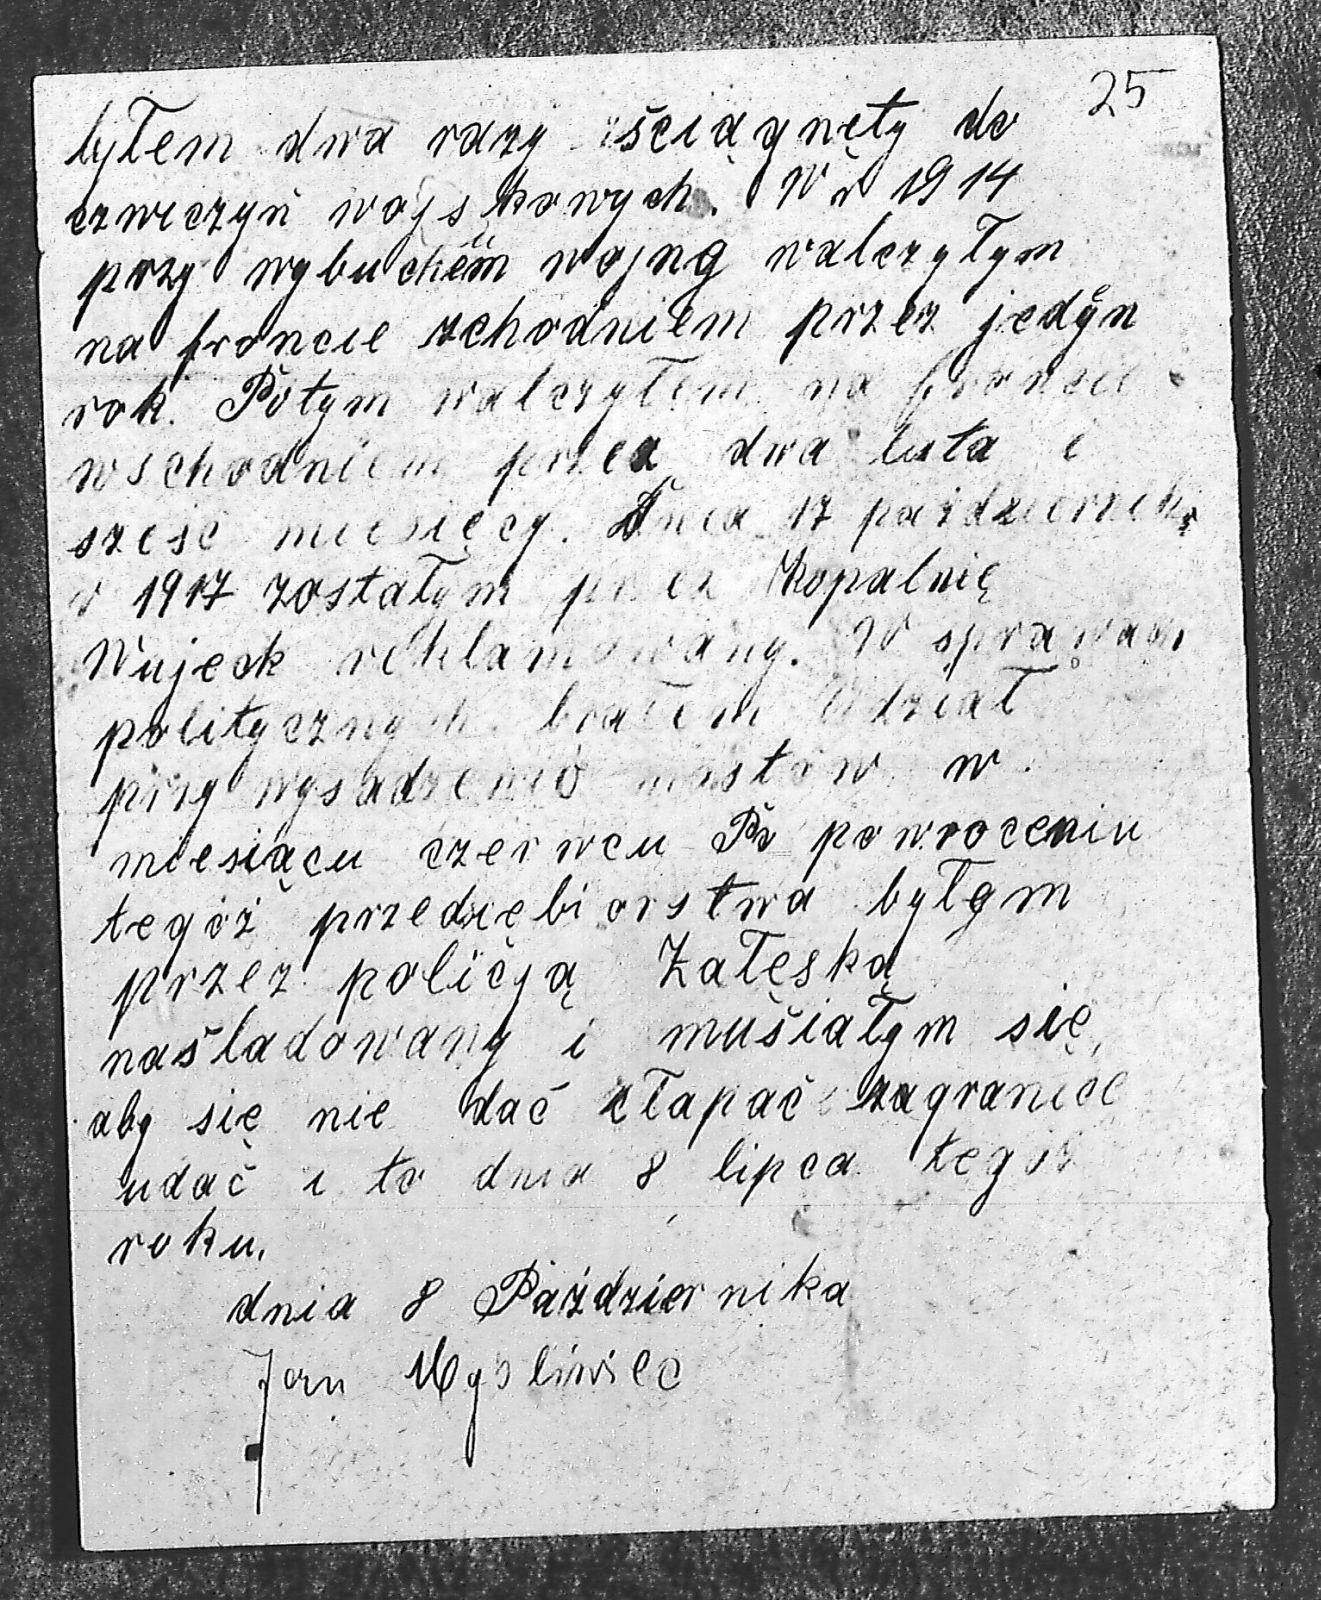 25
byłem dwa razy ściągnęty do
czwiczyń wojskowych. W r 1914
przy wybuchem wojny walczyłym
na froncie zchodniem przez jedyn
rok. Potym walczyłem na froncie
wschodniem przez dwa luta i
sześć miesięcy. Dnia 17 październik.
r 1917 zostałym przez Kopalnię
Wujeck reklamowany. W sprawach
politycznych brałem udział
przy wysadzenió mostów w
miesiącu czerwcu Po powroceniu
tegóż przedziębiorstwa byłym
przez policyją Załęską
naśladowany i musiałym się,
aby się nie dać cłapać zagranice
udać i to dnia 8 lipca tegóż
roku.
dnia 8 Października
Jan Mysliwiec